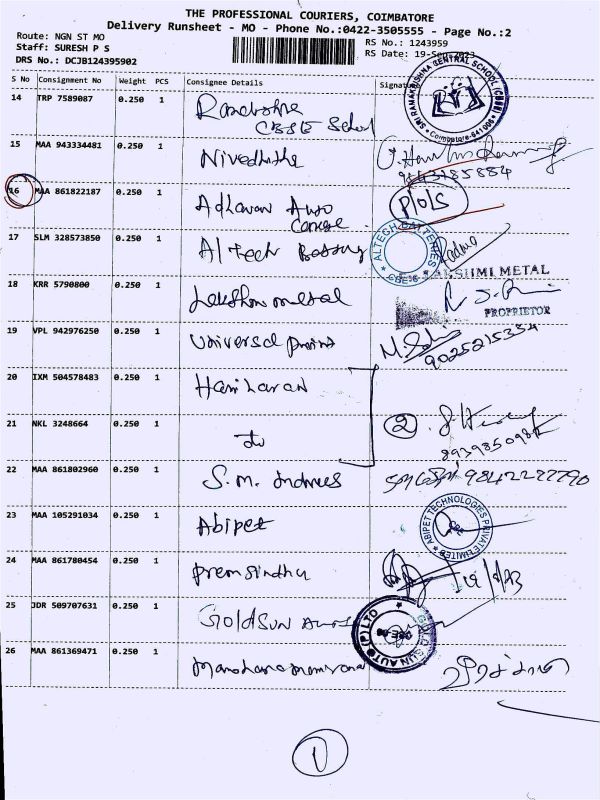 THE PROFESSIONAL COURIERS, COIMBATORE
Delivery Runsheet - MO - Phone No.:0422-3505555 - Page No.:2
Route: NGN ST MO
RS No.: 1243959
Staff: SURESH P S
RS Date: 19-Sep-2023
DRS No.: DCJB124395902
S No Consignment No Weight PCS Consignee Details Signature
SRI RAMAKRISHNA CENTRAL SCHOOL (CBSE)
Coimbatore-641006
14 TRP 7589087 0.250 1
CBSE School
15 MAA 943334481 0.250 1 Nivedhitha
9843785884
16 MAA 861822187 0.250 1 Adhavan Auto
17 SLM 328573850 0.250 1 Altech
ALTECH BATTERIES
CBE-6
Padma
18 KRR 5790800 0.250 1 metal
LAKSHMI METAL
PROPRIETOR
19 VPL 942976250 0.250 1 Universal
9025215354
20 IXM 504578483 0.250 1 Hariharan
21 NKL 3248664 0.250 1 do
2
22 MAA 861802960 0.250 1 S.M.
23 MAA 105291034 0.250 1 Abipet
ABIPET TECHNOLOGIES PRIVATE LIMITED
24 MAA 861780454 0.250 1 Premsindhu
19/9/23
25 JDR 509707631 0.250 1 Goldsun
GOLD SUN AUTO (P) LTD
26 MAA 861369471 0.250 1
1